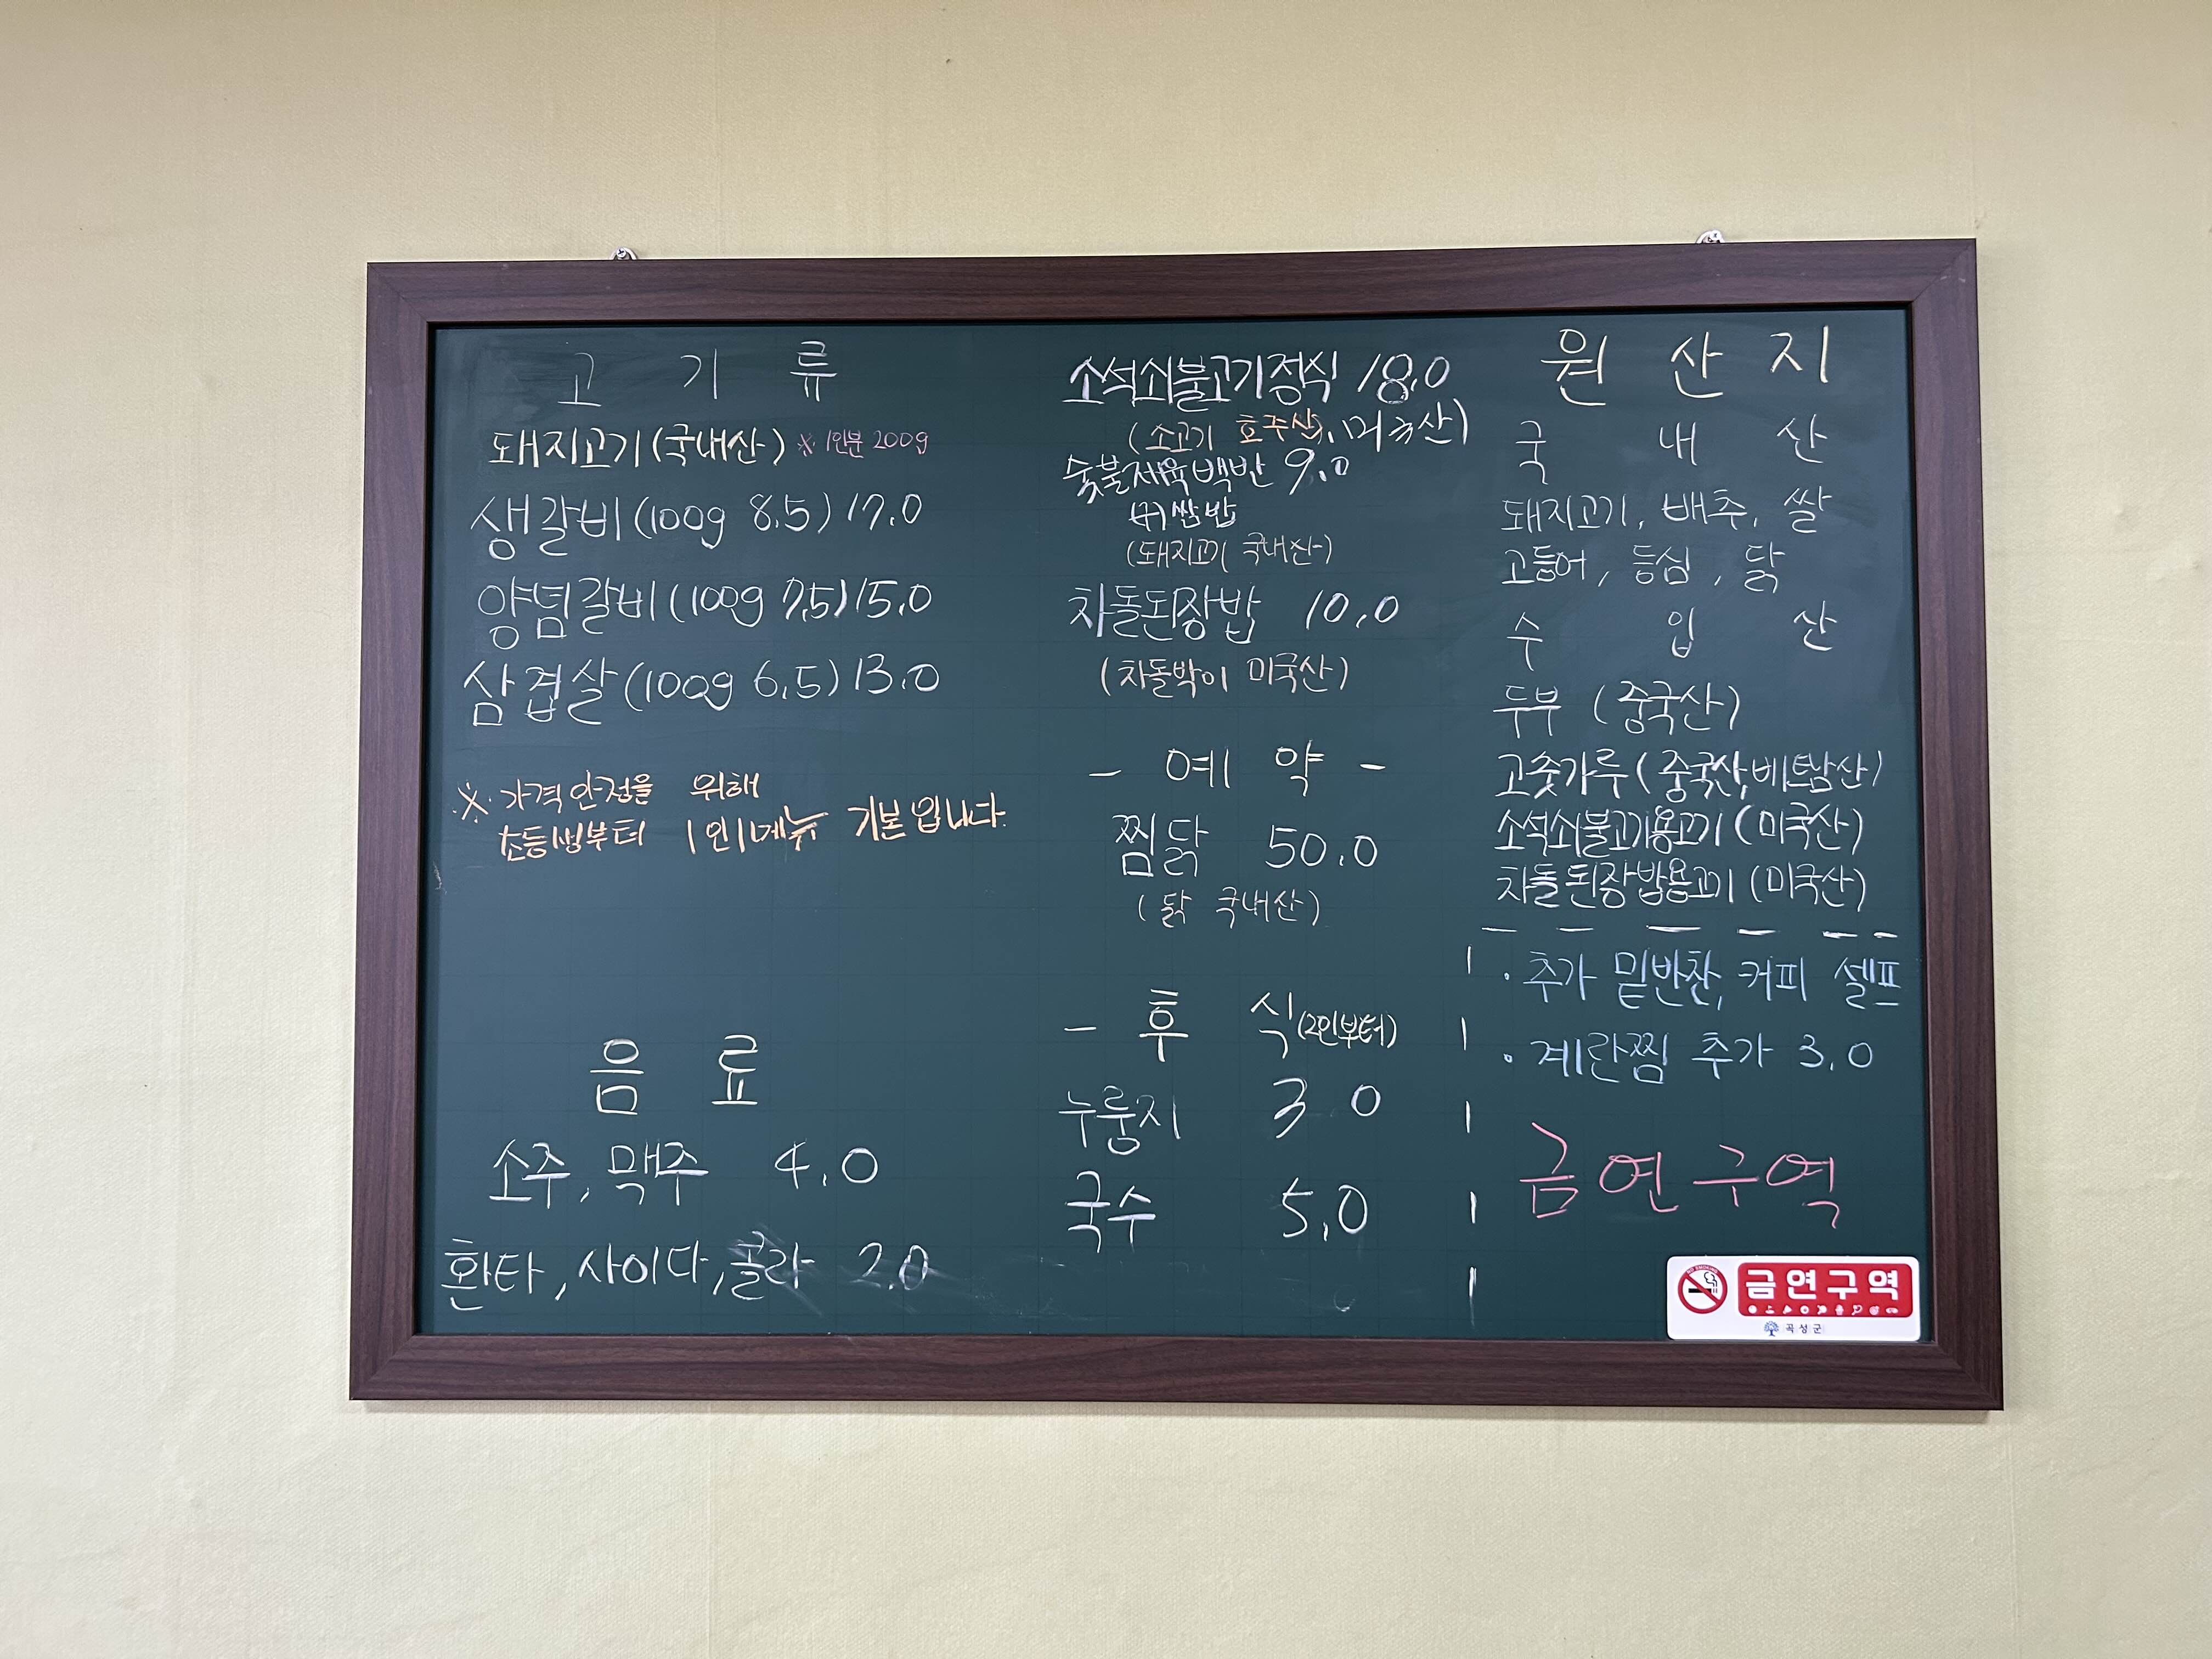 고 기 류
돼지고기(국내산) ※ 1인분 200g
생갈비(100g 8.5) 17.0
양념갈비(100g 7.5) 15.0
삼겹살(100g 6.5) 13.0
※ 가격안정을 위해
초등생부터 1인1메뉴 기본입니다.
음 료
소주, 맥주 4.0
환타, 사이다, 콜라 2.0
소석쇠불고기정식 18.0
(소고기 호주산, 미국산)
숯불제육백반 9.0
(구)쌈밥
(돼지고기 국내산)
차돌된장밥 10.0
(차돌박이 미국산)
- 예 약 -
찜닭 50.0
(닭 국내산)
- 후 식(2인부터)
누룽지 3.0
국수 5.0
원 산 지
국 내 산
돼지고기, 배추, 쌀
고등어, 등심, 닭
수 입 산
두부 (중국산)
고춧가루(중국산,베트남산)
소석쇠불고기용고기(미국산)
차돌된장밥용고기(미국산)
· 추가 밑반찬, 커피 셀프
· 계란찜 추가 3.0
금연구역
NO SMOKING
금연구역
곡성군